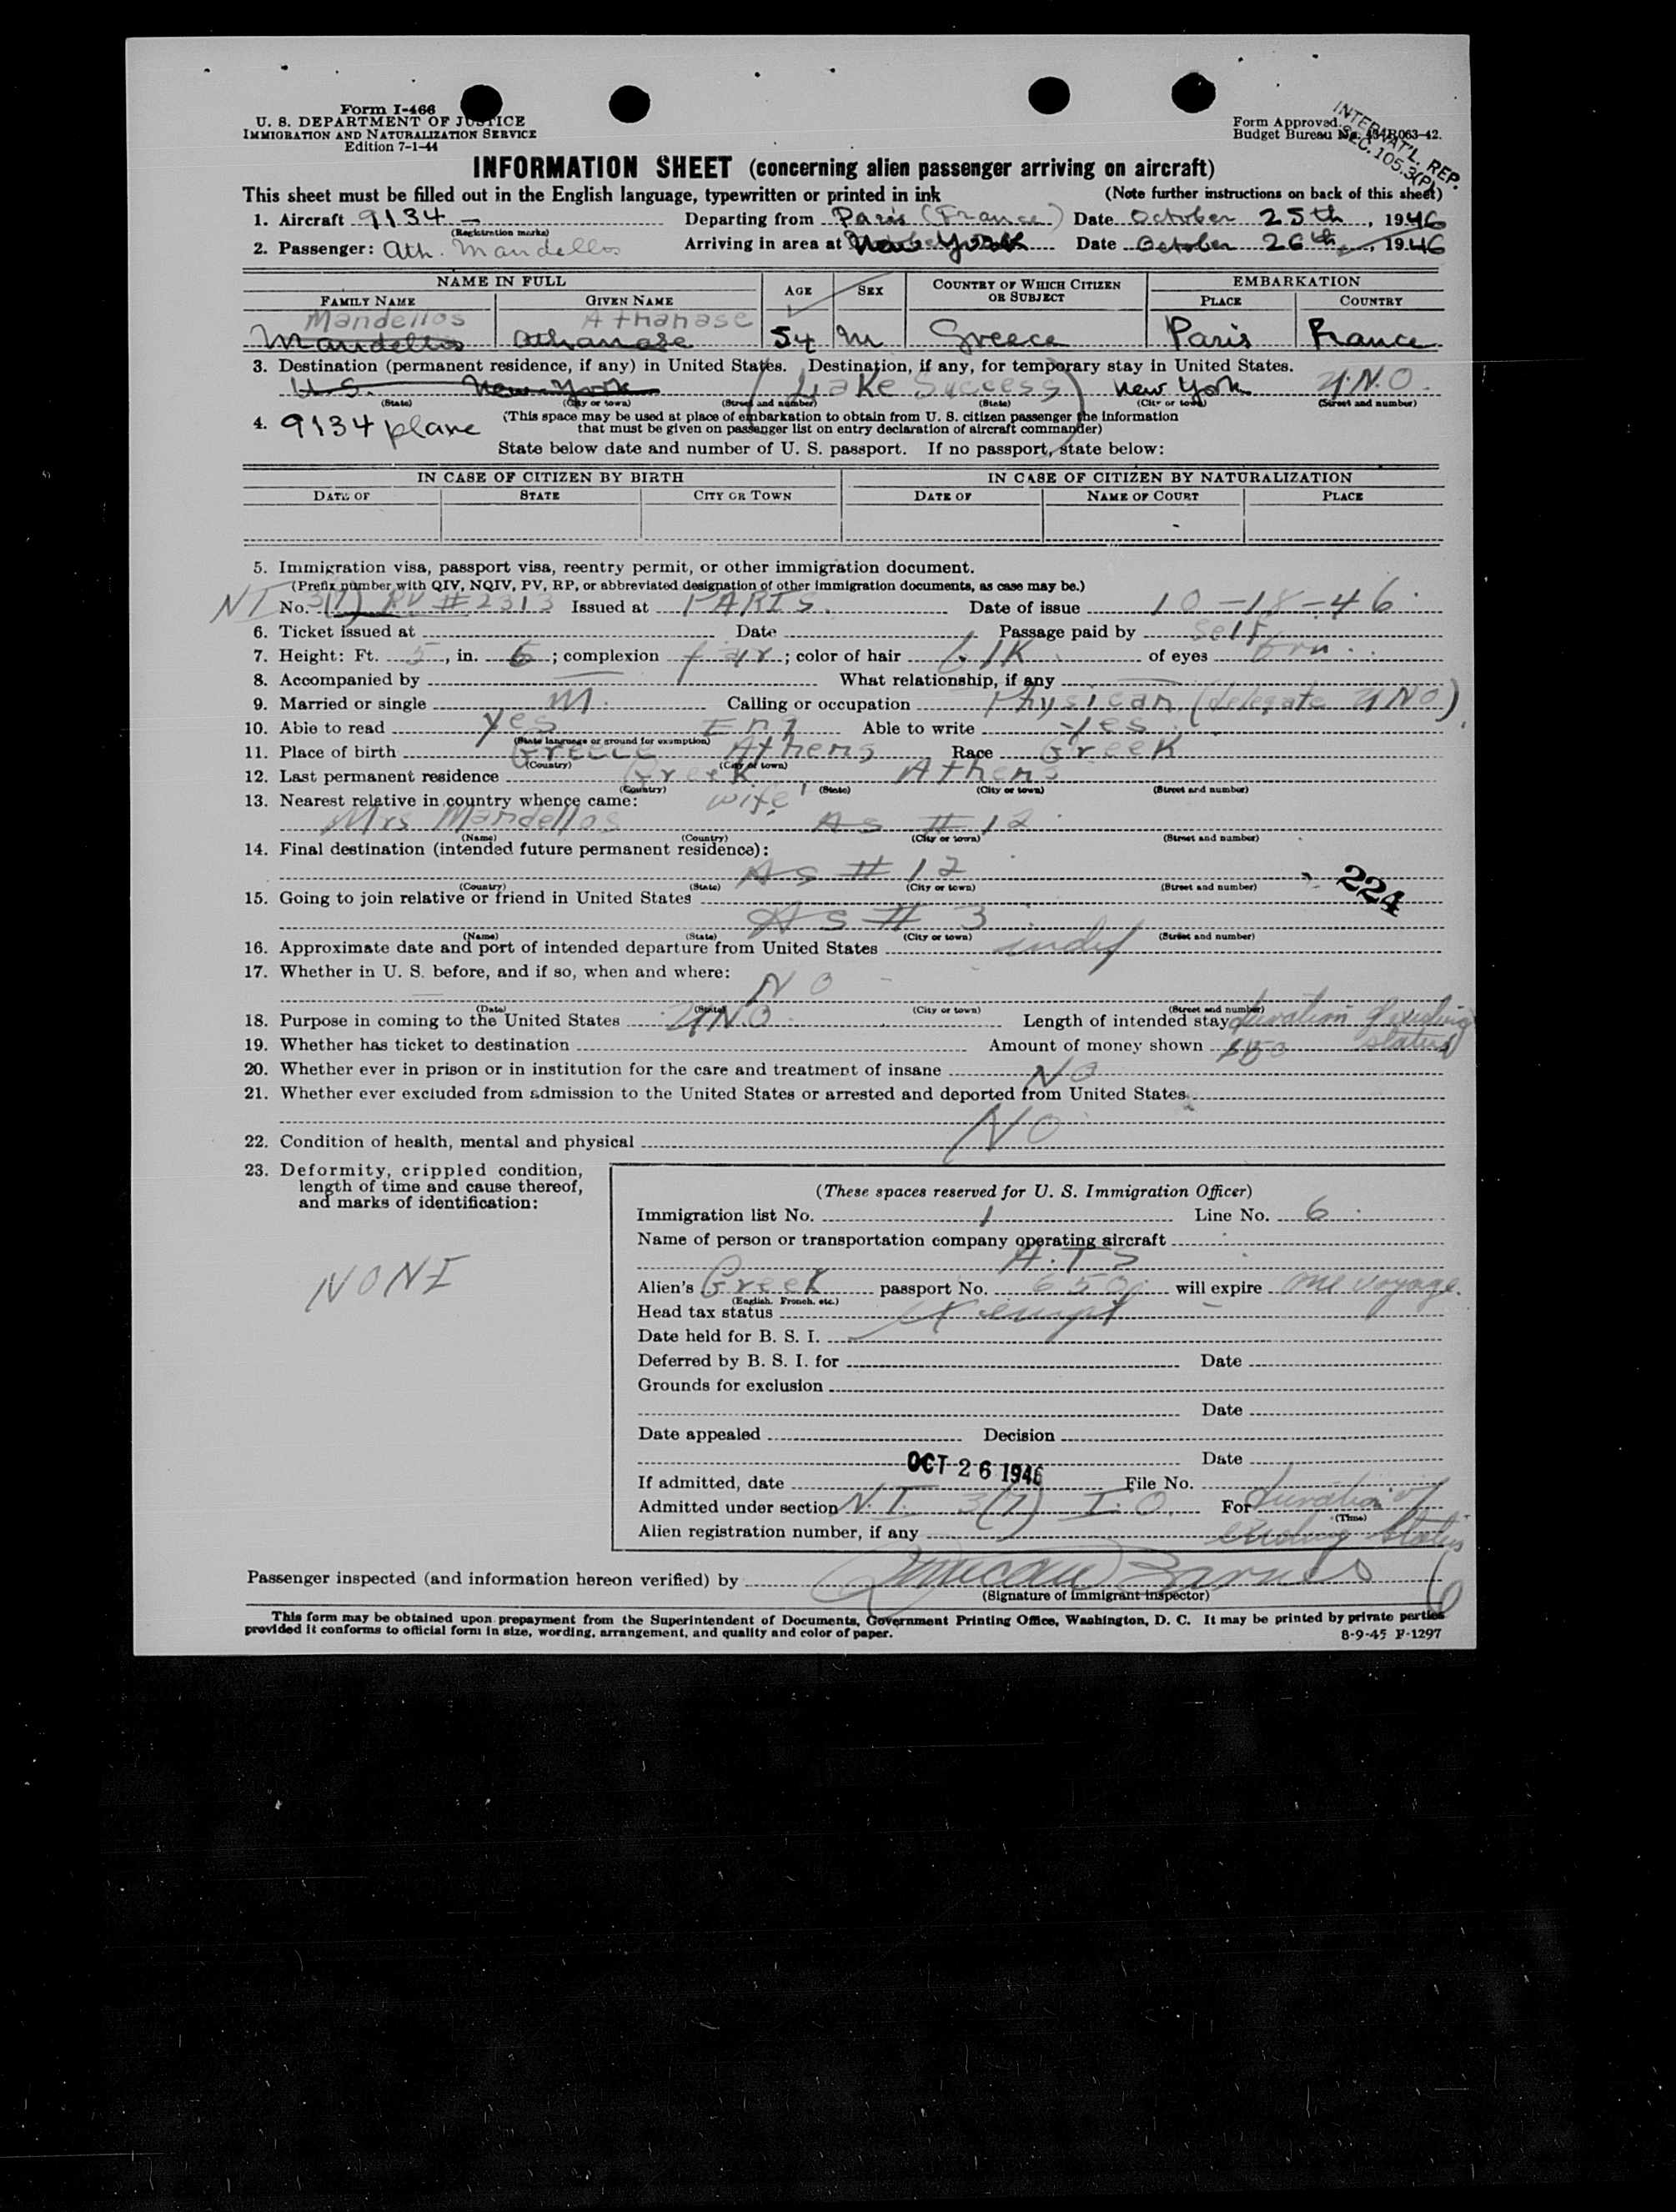 Form I-466
U. S. DEPARTMENT OF JUSTICE
IMMIGRATION AND NATURALIZATION SERVICE
Edition 7-1-44
Form Approved.
Budget Bureau No.
INTERNAT'L. REP.
SEC. 105.3(P)
INFORMATION SHEET (concerning alien passenger arriving on aircraft)
This sheet must be filled out in the English language, typewritten or printed in ink (Note further instructions on back of this sheet)
1. Aircraft 9134 — Departing from Paris (France) Date October 25th, 1946
(Registration marks)
2. Passenger: Ath. Mandellos Arriving in area at New York Date October 26th, 1946
NAME IN FULL AGE SEX COUNTRY OF WHICH CITIZEN OR SUBJECT EMBARKATION
FAMILY NAME GIVEN NAME PLACE COUNTRY
Mandellos Athanase
Mandellos Athanase 54 M Greece Paris France
3. Destination (permanent residence, if any) in United States. Destination, if any, for temporary stay in United States.
U.S. New York (Lake Success) New York U.N.O.
(State) (City or town) (Street and number) (State) (City or town) (Street and number)
4. 9134 plane (This space may be used at place of embarkation to obtain from U. S. citizen passenger the information
that must be given on passenger list on entry declaration of aircraft commander)
State below date and number of U. S. passport. If no passport, state below:
IN CASE OF CITIZEN BY BIRTH IN CASE OF CITIZEN BY NATURALIZATION
DATE OF STATE CITY OR TOWN DATE OF NAME OF COURT PLACE
5. Immigration visa, passport visa, reentry permit, or other immigration document.
(Prefix number with QIV, NQIV, PV, RP, or abbreviated designation of other immigration documents, as case may be.)
NI No. 3(7) PV #2313 Issued at PARIS. Date of issue 10-18-46
6. Ticket issued at Date Passage paid by self
7. Height: Ft. 5, in. 6; complexion fair; color of hair blk of eyes brn.
8. Accompanied by — What relationship, if any —
9. Married or single M. Calling or occupation Physican (delegate UNO)
10. Able to read Yes Eng Able to write Yes
(State language or ground for exemption)
11. Place of birth Greece Athens Race Greek
(Country) (City or town)
12. Last permanent residence Greek Athens
(Country) (State) (City or town) (Street and number)
13. Nearest relative in country whence came: wife
Mrs Mandellos As #12
(Name) (Country) (City or town) (Street and number)
14. Final destination (intended future permanent residence):
As #12
(Country) (State) (City or town) (Street and number)
224
15. Going to join relative or friend in United States
As # 3
(Name) (State) (City or town) (Street and number)
16. Approximate date and port of intended departure from United States indef
17. Whether in U. S. before, and if so, when and where:
NO
(Date) (State) (City or town) (Street and number)
18. Purpose in coming to the United States UNO Length of intended stay duration of existing
status
19. Whether has ticket to destination Amount of money shown
20. Whether ever in prison or in institution for the care and treatment of insane NO
21. Whether ever excluded from admission to the United States or arrested and deported from United States
NO
22. Condition of health, mental and physical
23. Deformity, crippled condition,
length of time and cause thereof,
and marks of identification:
NONE
(These spaces reserved for U. S. Immigration Officer)
Immigration list No. 1 Line No. 6
Name of person or transportation company operating aircraft
A.T.S
Alien's Greek passport No. will expire one voyage.
(English, French, etc.)
Head tax status Exempt
Date held for B. S. I.
Deferred by B. S. I. for Date
Grounds for exclusion
Date
Date appealed Decision
Date
If admitted, date OCT 26 1946 File No.
Admitted under section N.I. 3(7) I.O. For duration of
(Time)
Alien registration number, if any existing status
Passenger inspected (and information hereon verified) by Barnes
(Signature of immigrant inspector)
6
This form may be obtained upon prepayment from the Superintendent of Documents, Government Printing Office, Washington, D. C. It may be printed by private parties
provided it conforms to official form in size, wording, arrangement, and quality and color of paper.
8-9-45 F-1297